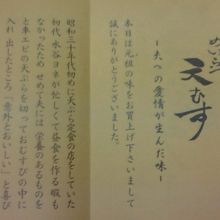 めいふつ
天むす
―夫への愛情が生んだ味―
本日は元祖の味をお買上げ下さいまして
誠にありがとうございました。
昭和三十年代初めに天ぷら定食の店をしていた
初代、水谷ヨネが忙しくて昼食を作る暇も
なかったため、せめて夫には、栄養のあるものを
と車エビの天ぷらを切っておむすびの中に
入れ出したところ「意外とおいしい」と喜び